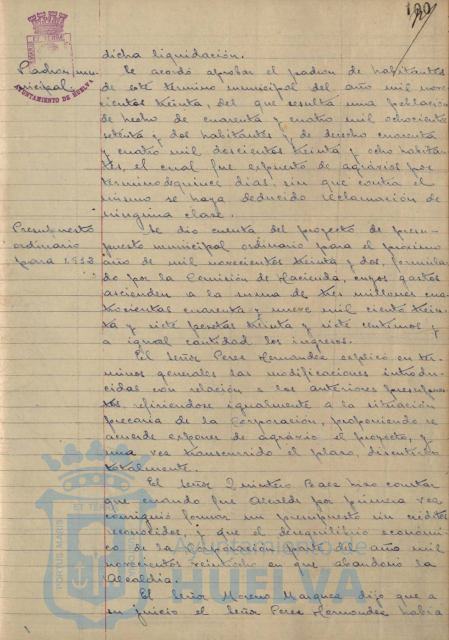 120
dicha liquidación.
Padron mu-
nicipal
AYUNTAMIENTO DE HUELVA
Se acordó aprobar el padron de habitantes
de este término municipal del año mil nove
cientos treinta, del que resulta una poblacion
de hecho de cuarenta y cuatro mil ochocientos
setenta y dos habitantes y de derecho cuarenta
y cuatro mil doscientos treinta y ocho habitan-
tes, el cual fue expuesto de agravios por
termino de quince dias, sin que contra el
mismo se haya deducido reclamación de
ninguna clase.
Presupuesto
ordinario
para 1932
Se dio cuenta del proyecto de presu-
puesto municipal ordinario para el próximo
año de mil novecientos treinta y dos, formula-
do por la Comisión de Hacienda, cuyos gastos
ascienden a la suma de tres millones cua-
trocientas cuarenta y nueve mil ciento trein-
ta y siete pesetas treinta y siete centimos y
a igual cantidad los ingresos.
El Señor Perez Hernandez explicó en tér-
minos generales las modificaciones introdu-
cidas con relación a los anteriores presupues-
tos, refiriendose igualmente a la situación
precaria de la Corporación, proponiendo se
acuerde exponer de agravio el proyecto, y
una vez transcurrido el plazo, discutirlo
totalmente.
El Señor Quintero Baez hizo constar
que cuando fue Alcalde por primera vez
consiguió formar un presupuesto sin créditos
reconocidos, y que el desequilibrio económi-
co de la Corporación parte del año mil
novecientos veintiocho en que abandonó la
Alcaldia.
El Señor Moreno Marquez dijo que a
su juicio el Señor Perez Hernandez habia
Ayuntamiento de
HUELVA
PORTUS MARIS
ET TERRAE